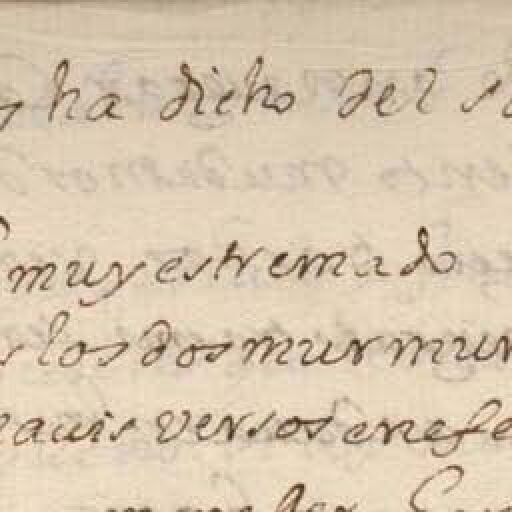 ha dicho del
muy estremado
los dos murmur
auis versos en efe